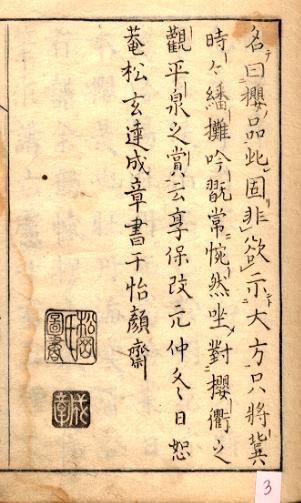 名曰櫻品此固非欲示大方只將冀
時々繙攤吟翫常惋然坐對櫻衢之
觀平泉之賞云享保改元仲冬日恕
菴松玄達成章書于怡顏齋
松岡氏圖書
成章
3